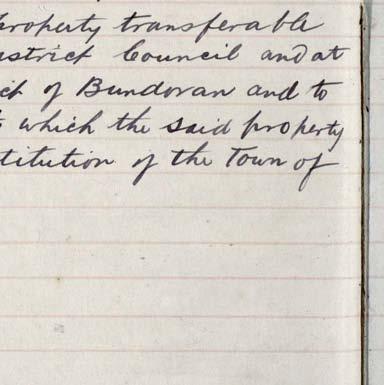 property transferable
istrict Council and at
ict of Bundoran and to
which the said property
titution of the Town of